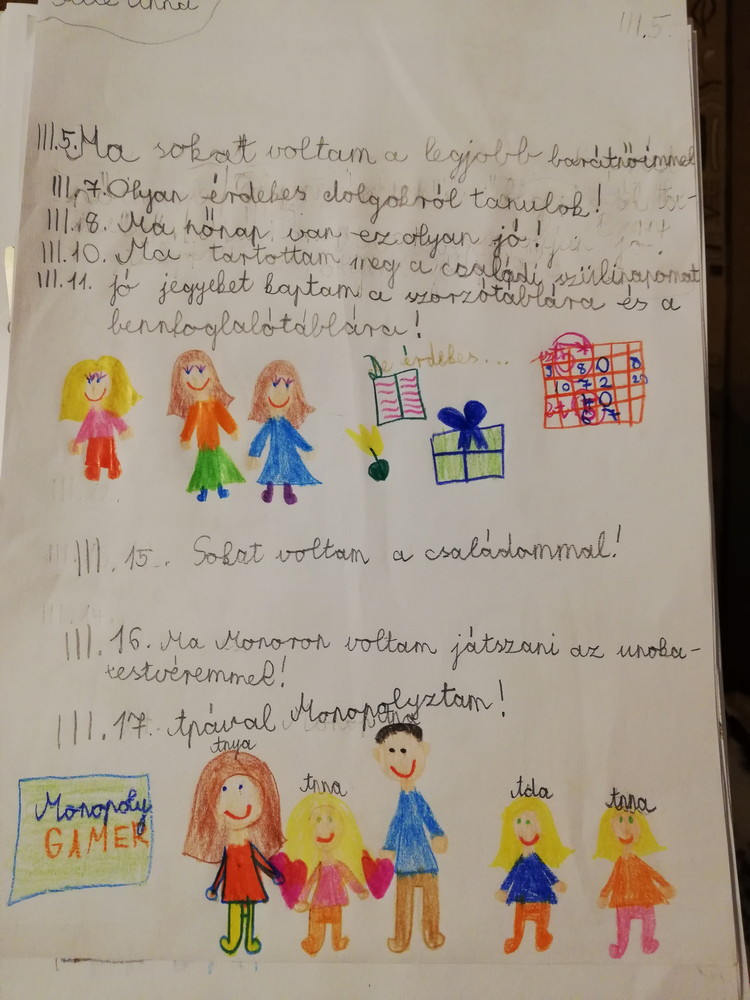 Anna
III.5.
III.5. Ma sokat voltam a legjobb barátnőimmel
III.7. Olyan érdekes dolgokról tanulok!
III.8. Ma nőnap van ez olyan jó!
III.10. Ma tartottam meg a családi szülinapomat
III.11. jó jegyeket kaptam a szorzótáblára és a
bennfoglalótáblára!
De érdekes...
III.15. Sokat voltam a családommal!
III.16. Ma Monoron voltam játszani az unoka-
testvéremmel!
III.17. Apával Monopolyztam!
Anya
Anna
Apa
Ada
Anna
Monopoly
GAMER